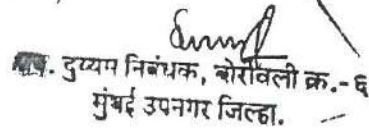 . दुय्यम निबंधक, बोरीवली क्र.- ६
मुंबई उपनगर जिल्हा.